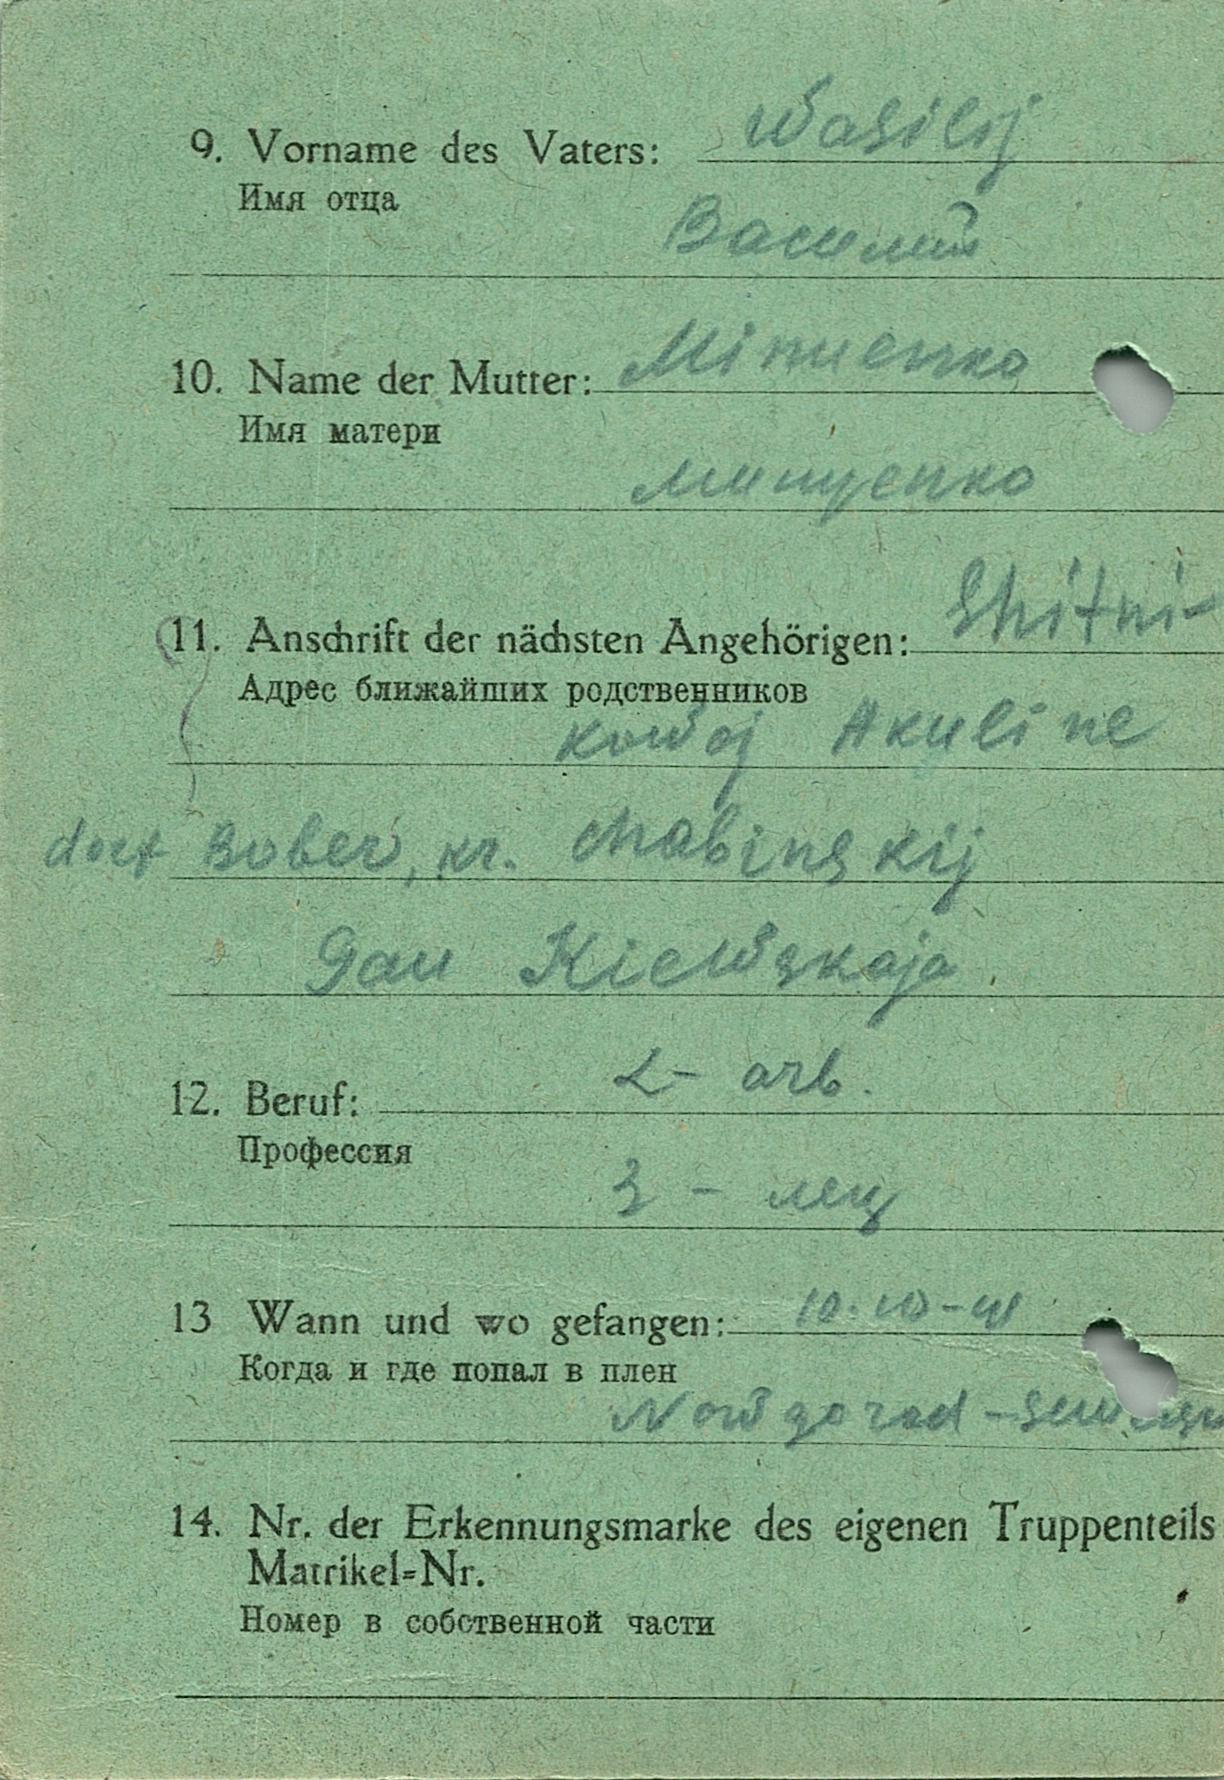 9. Vorname des Vaters: Wasilij
Имя отца
Василий
10. Name der Mutter: Minuenko
Имя матери
Минуенко
11. Anschrift der nächsten Angehörigen: Shitni-
Адрес ближайших родственников
kowoj Akuline
dorf Bober, kr. Chabinskij
Gau Kiewskaja
12. Beruf: L- arb.
Профессия
13 Wann und wo gefangen: 10.10-41
Когда и где попал в плен
Nowgorod -
14. Nr. der Erkennungsmarke des eigenen Truppenteils
Matrikel=Nr.
Номер в собственной части